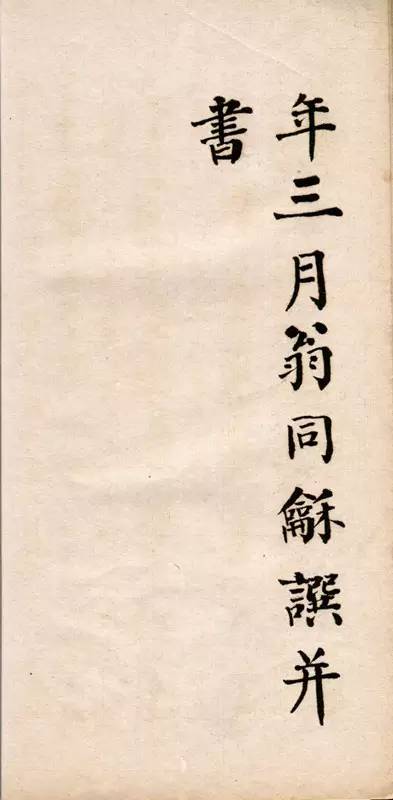 年三月翁同龢譔并
書